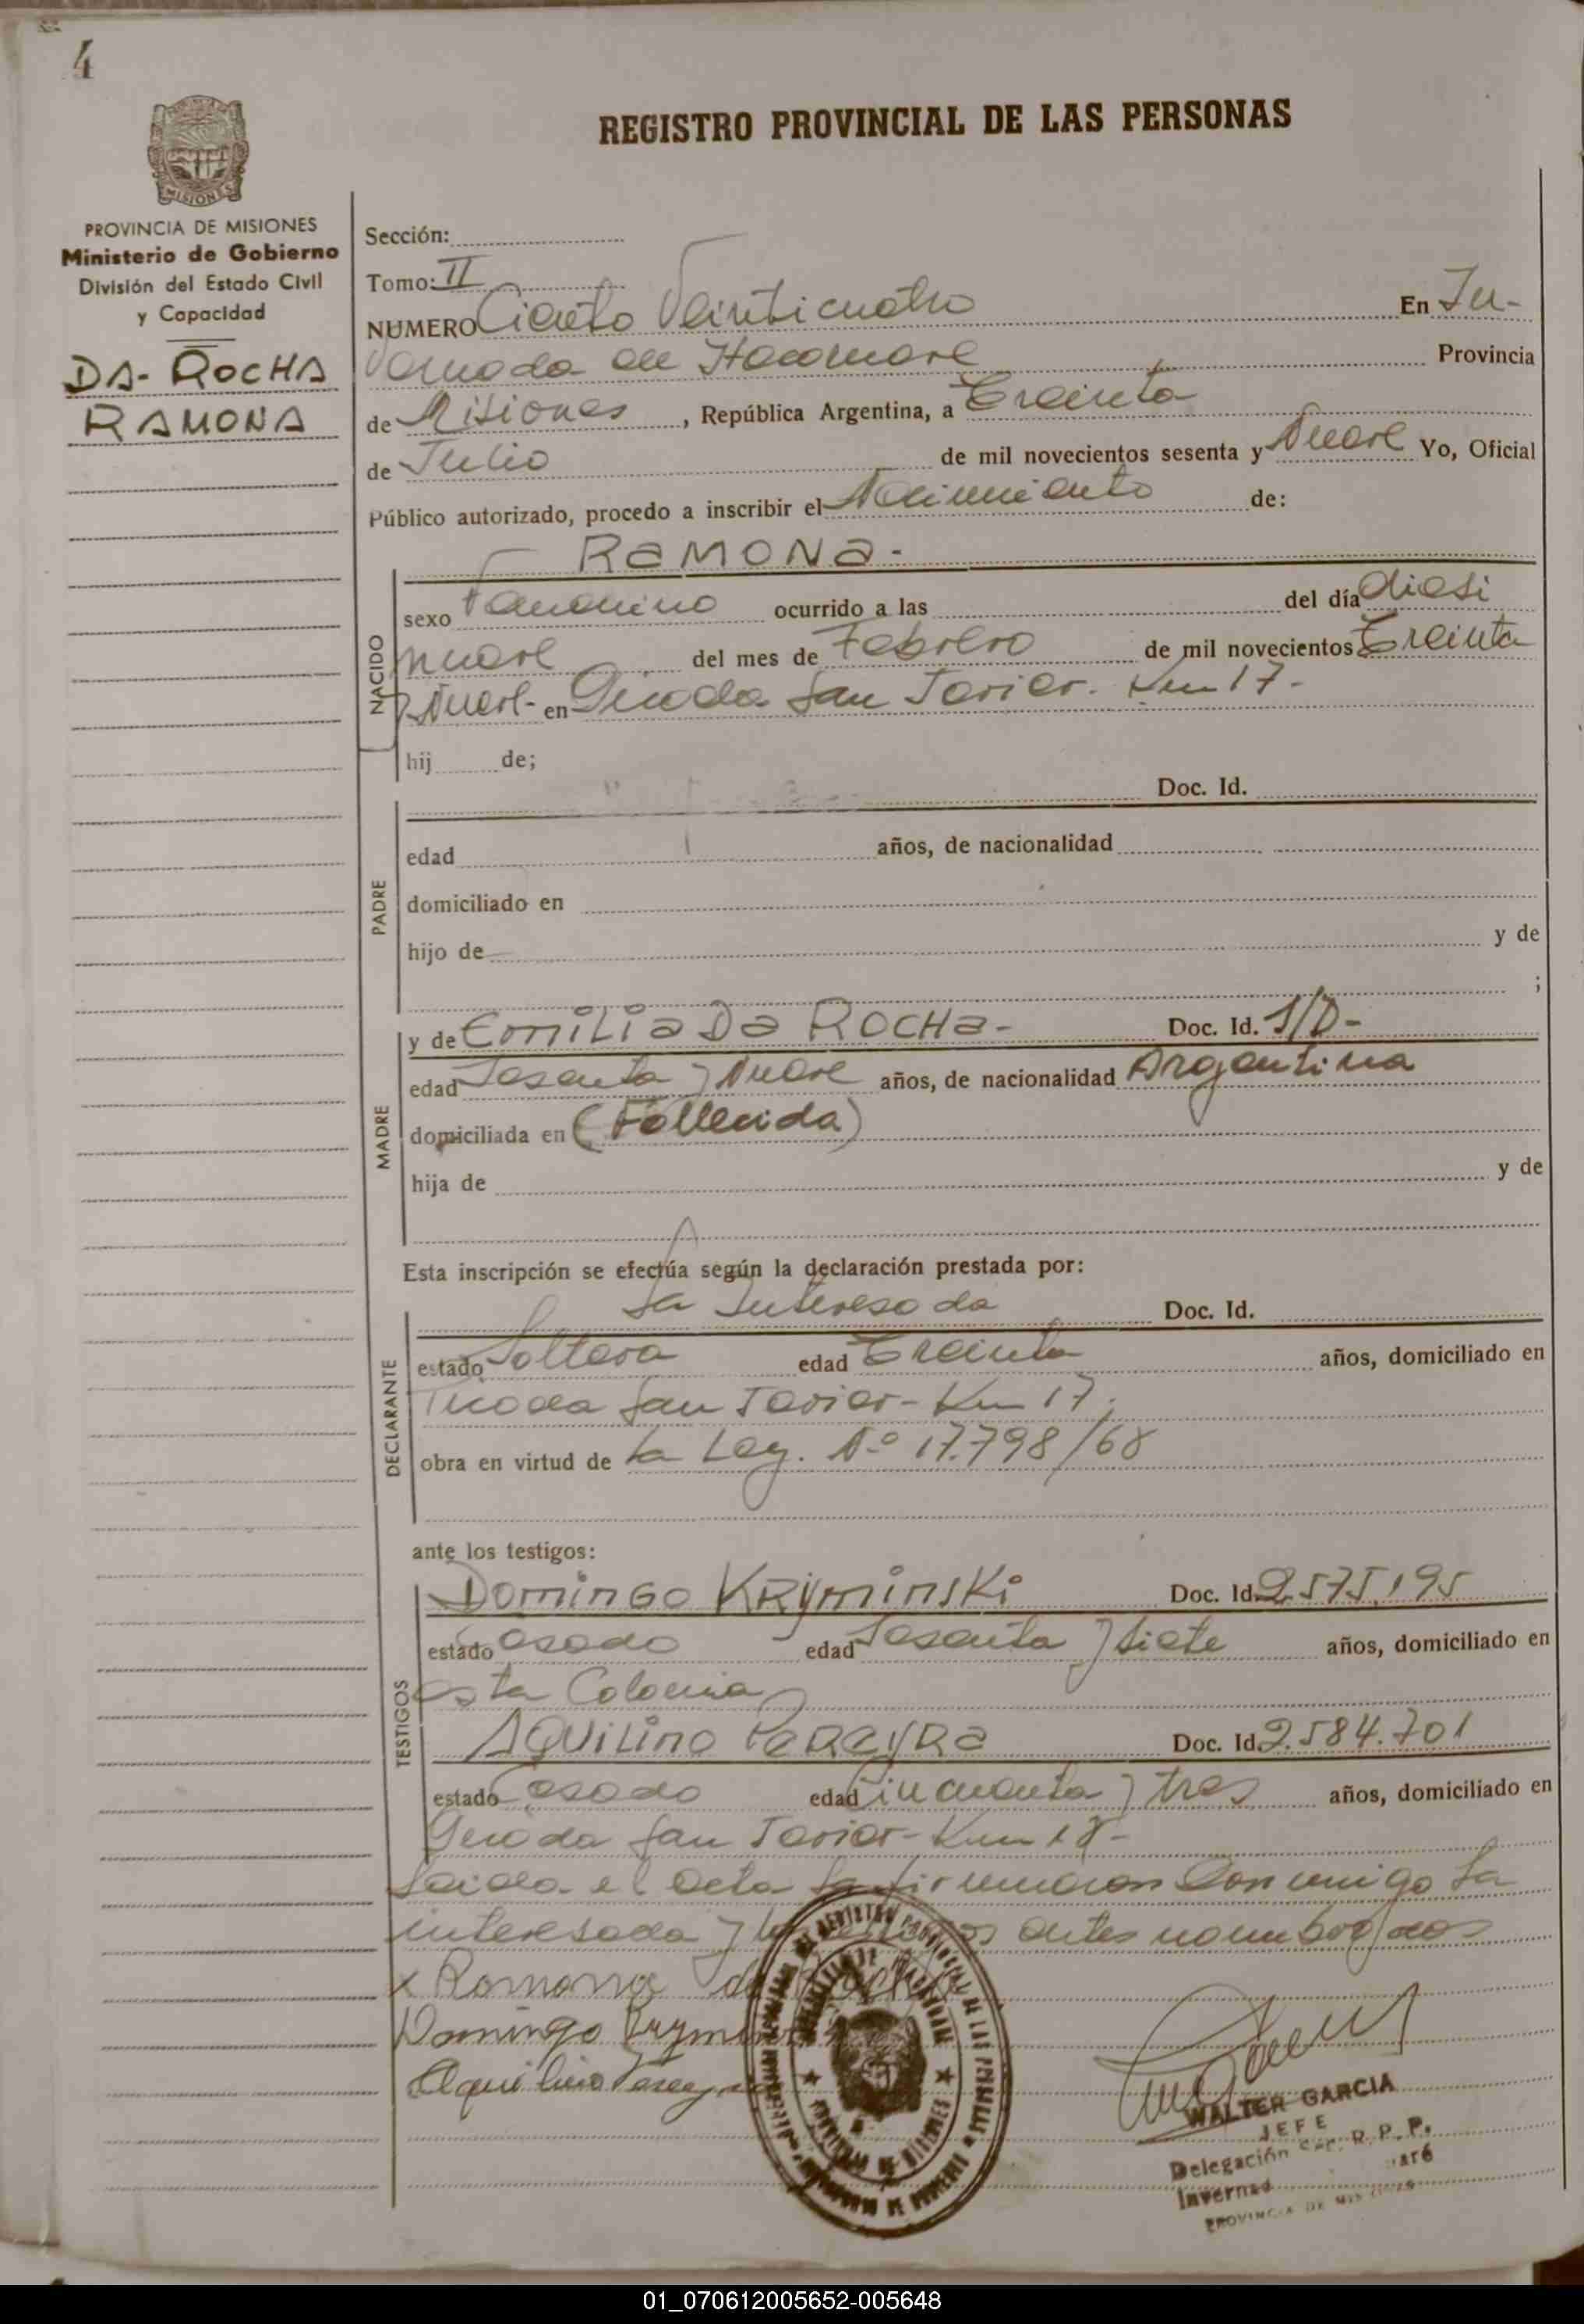 4
REGISTRO PROVINCIAL DE LAS PERSONAS
MISIONES
PROVINCIA DE MISIONES
Ministerio de Gobierno
División del Estado Civil
y Capacidad
DA-ROCHA
RAMONA
Sección:
Tomo: II
NUMERO Ciento Veinticuatro En In-
vernada de Itacaruare Provincia
de Misiones, República Argentina, a Treinta
de Julio de mil novecientos sesenta y Nueve Yo, Oficial
Público autorizado, procedo a inscribir el Nacimiento de:
RAMONA-
NACIDO
sexo Femenino ocurrido a las del día dieci
nueve del mes de Febrero de mil novecientos Treinta
y Nueve- en Picada San Javier. Km 17-
hij de;
Doc. Id.
PADRE
edad años, de nacionalidad
domiciliado en
hijo de y de
;
MADRE
y de EMILIA DA ROCHA- Doc. Id. S/D-
edad Sesenta y Nueve años, de nacionalidad Argentina
domiciliada en (Fallecida)
hija de y de
Esta inscripción se efectúa según la declaración prestada por:
La Interesada Doc. Id.
DECLARANTE
estado Soltera edad Treinta años, domiciliado en
Picada San Javier- Km 17.
obra en virtud de La Ley. Nº 17.798/68
ante los testigos:
TESTIGOS
DOMINGO KRYMINSKI Doc. Id. 2.575.195
estado Casado edad Sesenta y Siete años, domiciliado en
esta Colonia
AQUILINO PEREYRA Doc. Id. 2.584.701
estado Casado edad Cincuenta y tres años, domiciliado en
Picada San Javier- Km 18-
Leida el acta la firmaron conmigo la
interesada y los testigos antes nombrados
x Ramona da Rocha
Domingo Krymins
Aquilino Pereyra
WALTER GARCIA
JEFE
Delegación R. P. P.
PROVINCIA DE MISIONES
01_070612005652-005648